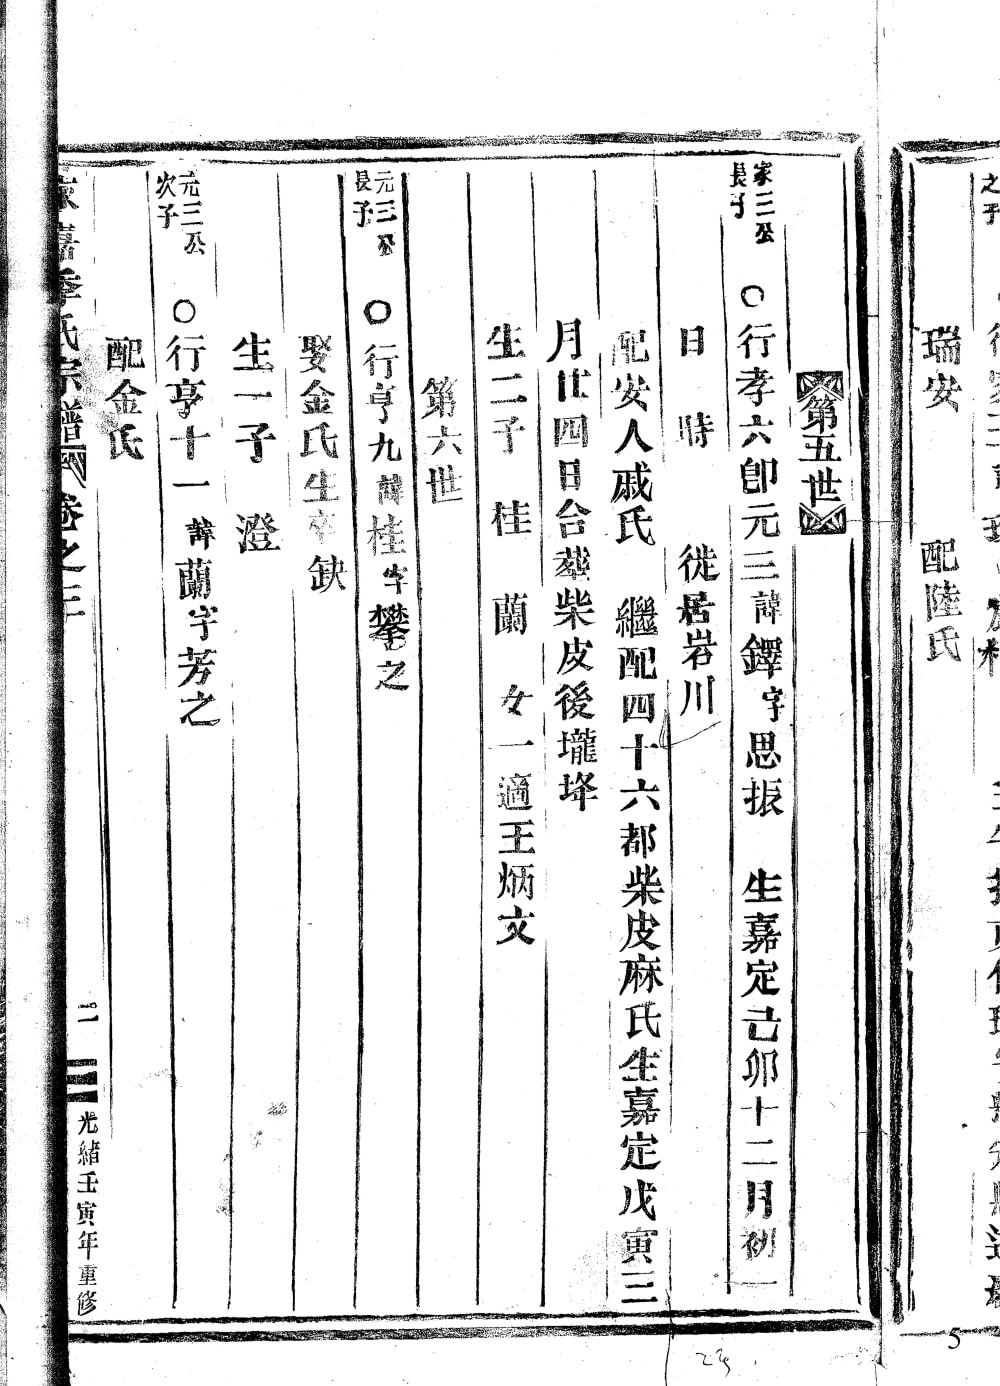 之子
瑞安 配陸氏
第五世
家三公
長子
○行孝六卽元三諱鐸字思振 生嘉定己卯十二月初一
日 時 徙居岩川
配安人戚氏 繼配四十六都柴皮麻氏生嘉定戊寅三
月廿四日合葬柴皮後壠垟
生二子 桂 蘭 女一適王炳文
第六世
元三公
長子
○行亨九諱桂字攀之
娶金氏生卒缺
生一子 澄
元三公
次子
○行亨十一諱蘭字芳之
配金氏
嘉季氏宗譜 卷之三
二
光緒壬寅年重修
5